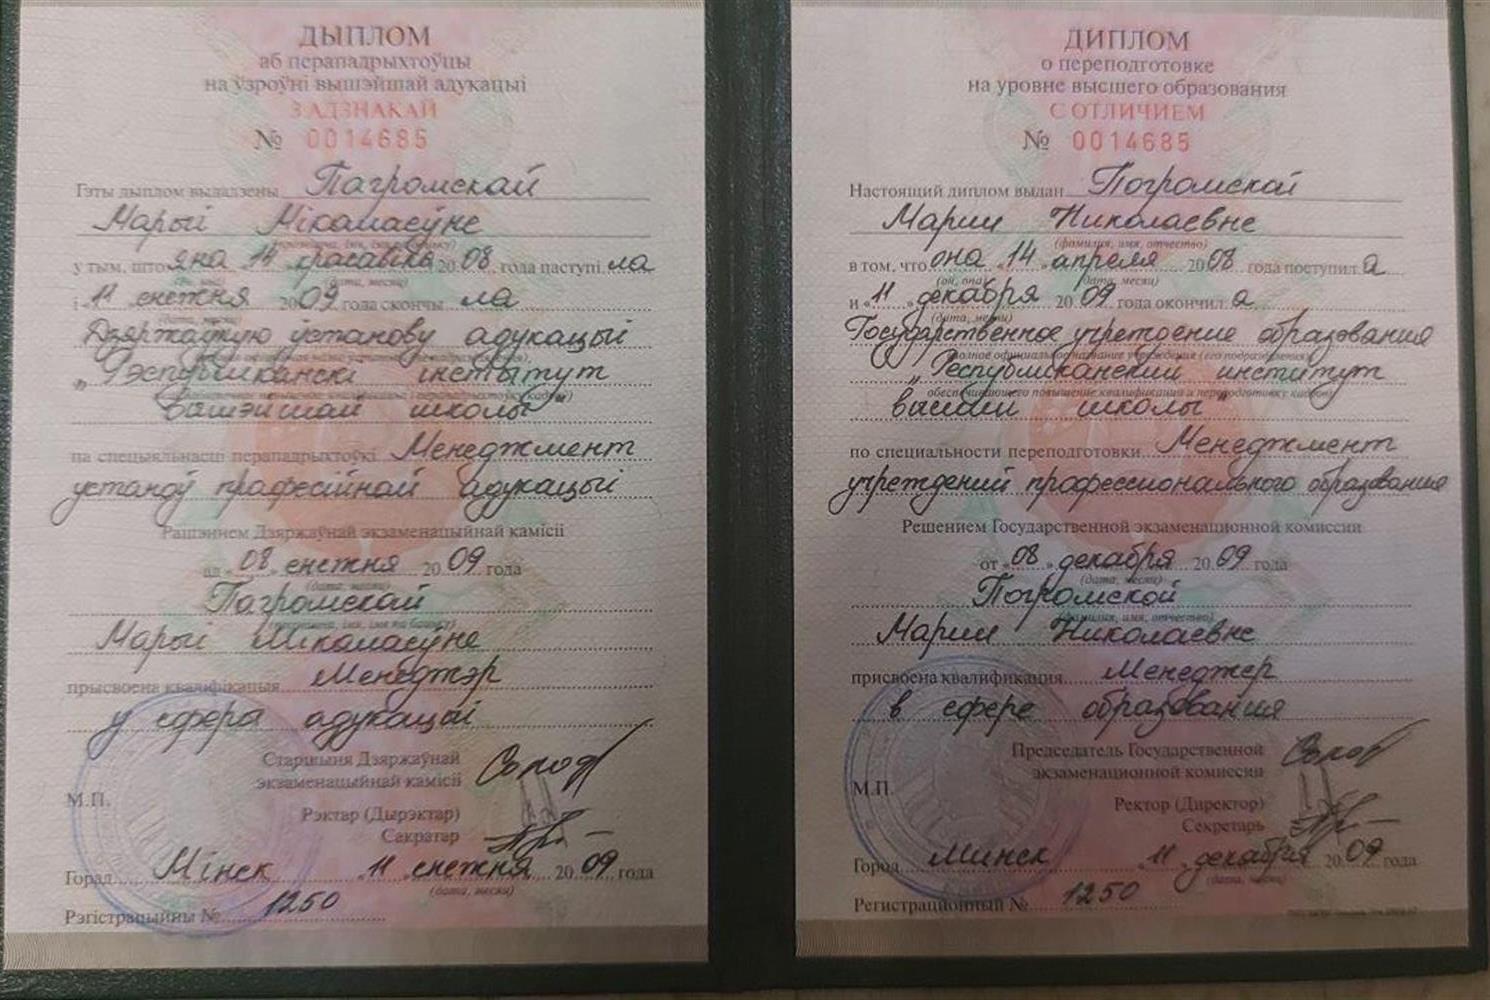 ДЫПЛОМ
аб перападрыхтоўцы
на ўзроўні вышэйшай адукацыі
З АДЗНАКАЙ
№ 0014685
Гэты дыплом выдадзены Пагромскай
Марыі Мікалаеўне
(прозвішча, імя, імя па бацьку)
у тым, што яна 14 красавіка 2008 года паступіла
(дата, месяц)
і «11» снежня 2009 года скончыла
Дзяржаўную ўстанову адукацыі
„Рэспубліканскі інстытут
вышэйшай школы"
па спецыяльнасці перападрыхтоўкі Менеджмент
устаноў прафесійнай адукацыі
Рашэннем Дзяржаўнай экзаменацыйнай камісіі
ад «08» снежня 2009 года
(дата, месяц)
Пагромскай
(прозвішча, імя, імя па бацьку)
Марыі Мікалаеўне
прысвоена кваліфікацыя Менеджэр
у сферы адукацыі
Старшыня Дзяржаўнай
экзаменацыйнай камісіі
М.П.
Рэктар (Дырэктар)
Сакратар
Горад Мінск «11» снежня 2009 года
(дата, месяц)
Рэгістрацыйны № 1250
ДИПЛОМ
о переподготовке
на уровне высшего образования
С ОТЛИЧИЕМ
№ 0014685
Настоящий диплом выдан Погромской
Марии Николаевне
(фамилия, имя, отчество)
в том, что она «14» апреля 2008 года поступила
(он, она) (дата, месяц)
и «11» декабря 2009 года окончила
(дата, месяц)
Государственное учреждение образования
(полное официальное название учреждения (его подразделения),
„Республиканский институт
обеспечивающего повышение квалификации и переподготовку кадров)
высшей школы"
по специальности переподготовки Менеджмент
учреждений профессионального образования
Решением Государственной экзаменационной комиссии
от «08» декабря 2009 года
(дата, месяц)
Погромской
(фамилия, имя, отчество)
Марии Николаевне
присвоена квалификация Менеджер
в сфере образования
Председатель Государственной
экзаменационной комиссии
М.П.
Ректор (Директор)
Секретарь
Город Минск «11» декабря 2009 года
(дата, месяц)
Регистрационный № 1250